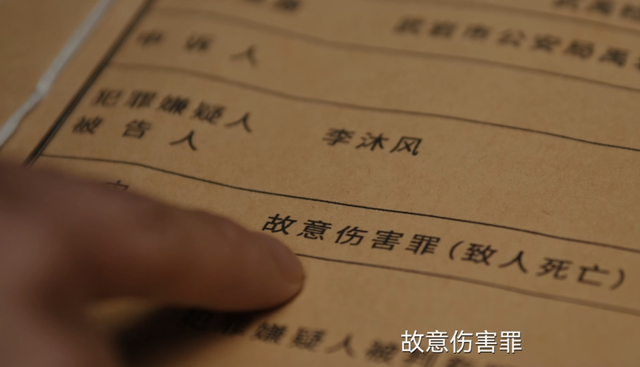 武岩市公安局禹
申诉人
犯罪嫌疑人
被告人
李沐风
故意伤害罪(致人死亡)
犯罪嫌疑人被判
故意伤害罪